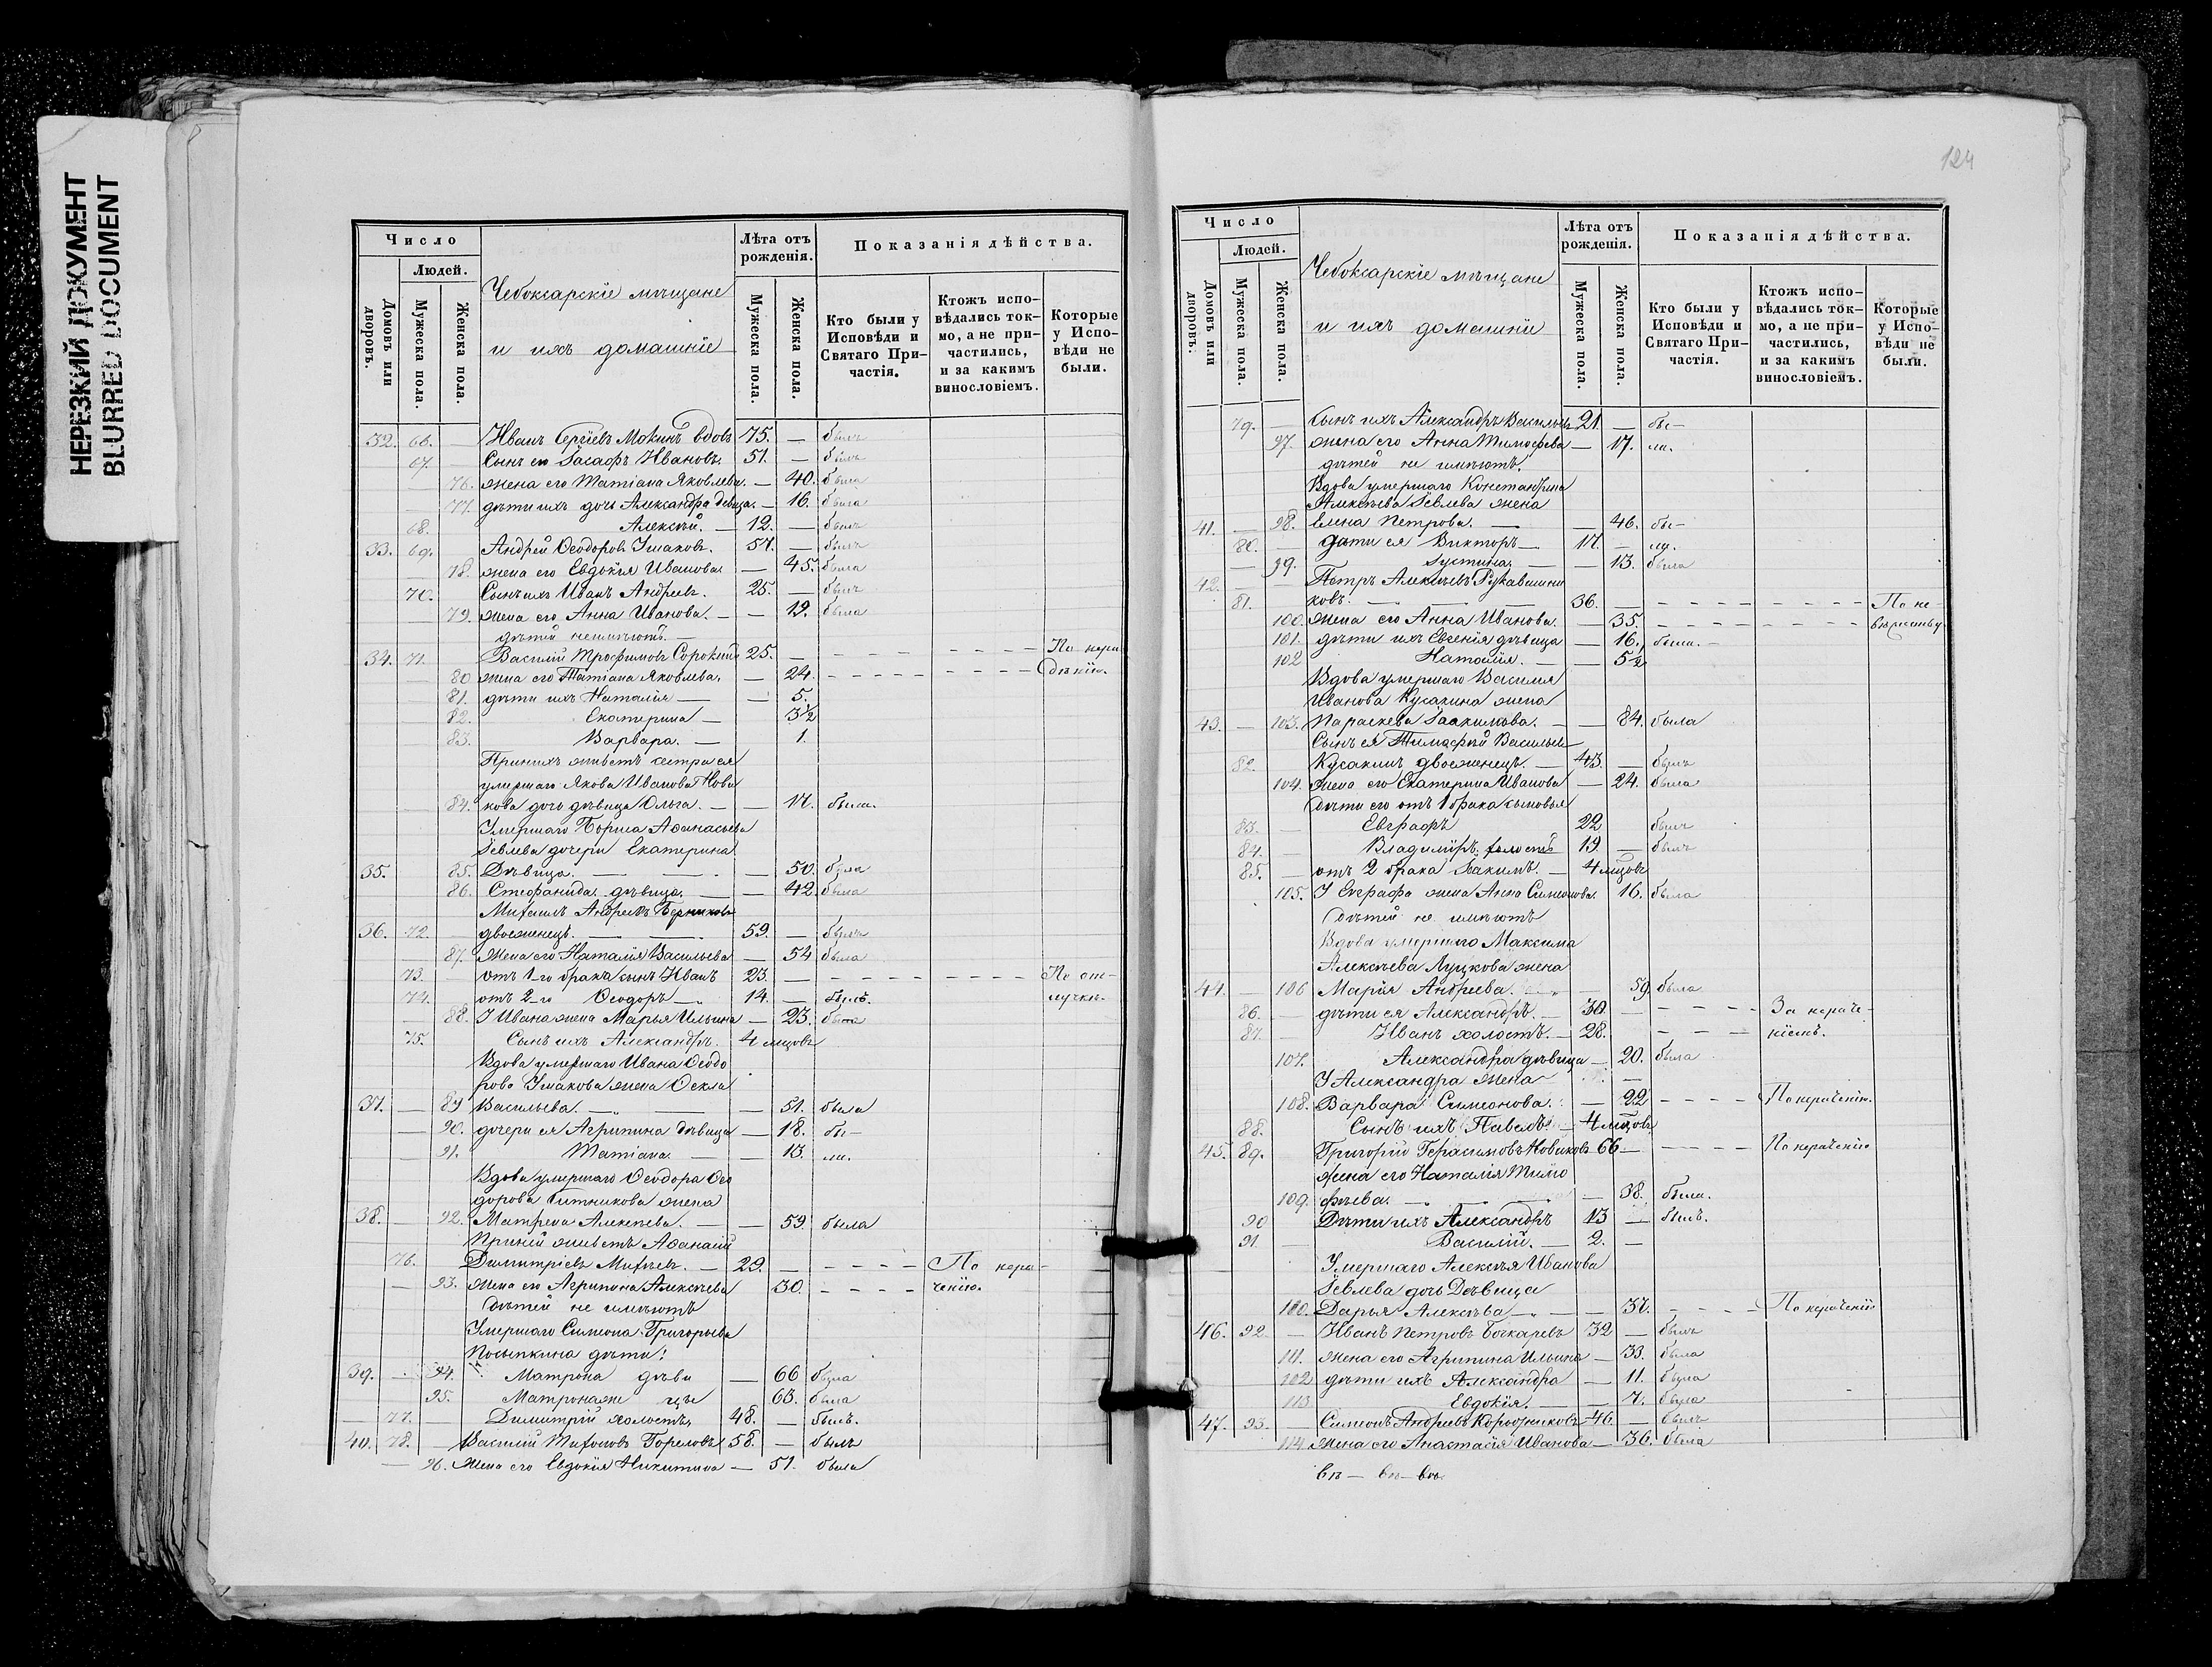 НЕРЕЗКИЙ ДОКУМЕНТ
BLURRED DOCUMENT
Число
Людей.
Домовъ или дворовъ.
Мужеска пола.
Женска пола.
Чебоксарскіе мѣщане
и ихъ домашніе
Лѣта отъ рожденія.
Мужеска пола.
Женска пола.
Показанія дѣйства.
Кто были у Исповѣди и Святаго Причастія.
Ктожъ исповѣдались токмо, а не причастились, и за какимъ винословіемъ.
Которые у Исповѣди не были.
32. 66. — Иванъ Сергіевъ Мокинъ вдовъ 75. — былъ
67. Сынъ его Іасафъ Ивановъ. 51. — былъ
76. жена его Татіана Яковлева. — 40. была
77. дѣти ихъ дочь Александра девица. — 16. была
68. Алексѣй. — 12. — былъ
33. 69. Андрей Ѳеодоровъ Ушаковъ. 57. — былъ
78. жена его Евдокія Иванова — 45. была
70. Сынъ ихъ Иванъ Андреевъ. 25. — былъ
79. жена его Анна Иванова. — — 19. была
дѣтей неимѣютъ. —
34. 71. Василій Трофимовъ Сорокинъ 25. — — — — По нера
80. жена его Татіана Яковлева. — 24. — — — — дѣнію.
81. дѣти ихъ Наталія — — 5.
82. Екатерина — 3½
83. Варвара. — 1.
При нихъ живетъ сестра ея
умершаго Якова Иванова Нови
84. кова дочь дѣвица Ольга. — — 17. была.
Умершаго Бориса Аѳанасьева
Іевлева дочери Екатерина
35. 85. Дѣвица. — — — 50. была
86. Стефанида дѣвица. — 42. была
Михаилъ Андреевъ
36. 72. двоеженецъ. — — 59. — былъ
87. Жена его Наталія Васильева — 54 была
73. отъ 1-го брака сынъ Иванъ 23. — — — — По от-
74. отъ 2-го Ѳеодоръ — 14. — былъ. лучкѣ.
88. У Ивана жена Марья Ильина — 23. была
75. Сынъ ихъ Александръ. 4 мѣсцовъ
Вдова умершаго Ивана Ѳеодо
рова Ушакова жена Ѳекла
37. — 89 Васильева. — — — 51. была
— 90. дочери ея Агрипина дѣвица — 18. бы—
— 91. Татіана. — — 13. ли.
Вдова умершаго Ѳеодора Ѳео
дорова Ситникова жена
38. — 92. Матрена Алексѣева. — — 59 была
При ней живетъ Аѳанасій
76. Димитріевъ Михѣевъ. — 29. — — — — По нера-
— 93. жена его Агрипина Алексѣева 30. — — — — ченію.
Дѣтей не имѣютъ
Умершаго Симеона Григорьева
Посыпкина дѣти:
39. — 94. Матрона дѣви — 66 была
95. Матрона же цы 63. была
— 77. — Димитрій холостъ. 48. — былъ.
40. 78. — Василій Тихоновъ Гореловъ 58. — былъ
— 96. Жена его Евдокія Никитина — 51. была
124
Число
Людей.
Домовъ или дворовъ.
Мужеска пола.
Женска пола.
Чебоксарскіе мѣщане
и ихъ домашніе
Лѣта отъ рожденія.
Мужеска пола.
Женска пола.
Показанія дѣйства.
Кто были у Исповѣди и Святаго Причастія.
Ктожъ исповѣдались токмо, а не причастились, и за какимъ винословіемъ.
Которые у Исповѣди не были.
79. — Сынъ ихъ Александръ Васильевъ 21. — бы—
97. жена его Анна Тимофеева — 17. ли.
дѣтей не имѣютъ.
Вдова умершаго Константина
Алексѣева Іевлева жена
41. — 98. Елена Петрова. — — 46. бы—
80. — Дѣти ея Викторъ — 17. — ли.
— 99. Іустина. — — 13. была
42. — Петръ Алексѣевъ Рукавишни
81. ковъ. — — — 36. — — — — По не-
100. Жена его Анна Иванова. — 35. — — — —
101. дѣти ихъ Евгенія дѣвица — 16. была. —
102 Наталія. — — 5½
Вдова умершаго Василія
Иванова Кусакина жена
43. — 103. Параскева Іоакимова. — — 84. была
Сынъ ея Тимофей Васильевъ
82. Кусакинъ двоеженецъ. — 43. — былъ
104. Жена его Екатерина Иванова — 24. была
Дѣти его отъ 1 брака сыновья
83. — Евграфъ 22 былъ
84. — Владиміръ. холостъ 19. — былъ
85. — отъ 2 брака Іакимъ. — 4 мѣсцовъ
105. У Евграфа жена Анна Симеонова. 16. была
Дѣтей не имѣютъ
Вдова умершаго Максима
Алексѣева Луцкова жена
44. — 106 Марія Андреева. — 59 была
86. — дѣти ея Александръ. — 30. — — — — За нераче-
87. — Иванъ холостъ. — 28. — — — ніемъ.
107. Александра дѣвица — 20. была
У Александра жена —
108. Варвара Симеонова. — 22 — — — — По нераченію.
88. Сынъ ихъ Павелъ — 4 мѣсцовъ
45. 89. Григорій Герасимовъ Новиковъ 66 — — — — По нераченію
Жена его Наталія Тимо
109. фѣева. — — — 38. была.
90 Дѣти ихъ Александръ 13 — былъ.
91. — Василій. — 2. —
Умершаго Алексѣя Иванова
Іевлева дочь Дѣвица
110. Дарья Алексѣева — — — 37. — — — — По нераченію
46. 92. — Иванъ Петровъ Бочкаревъ 32 — былъ
111. жена его Агрипина Ильина — 33. была
102 дѣти ихъ Александра — 11. была
113. Евдокія. — — 7. была
47. 93. — Симеонъ Андреевъ Коробейниковъ 46. — былъ
114. жена его Анастасія Иванова — 36. была